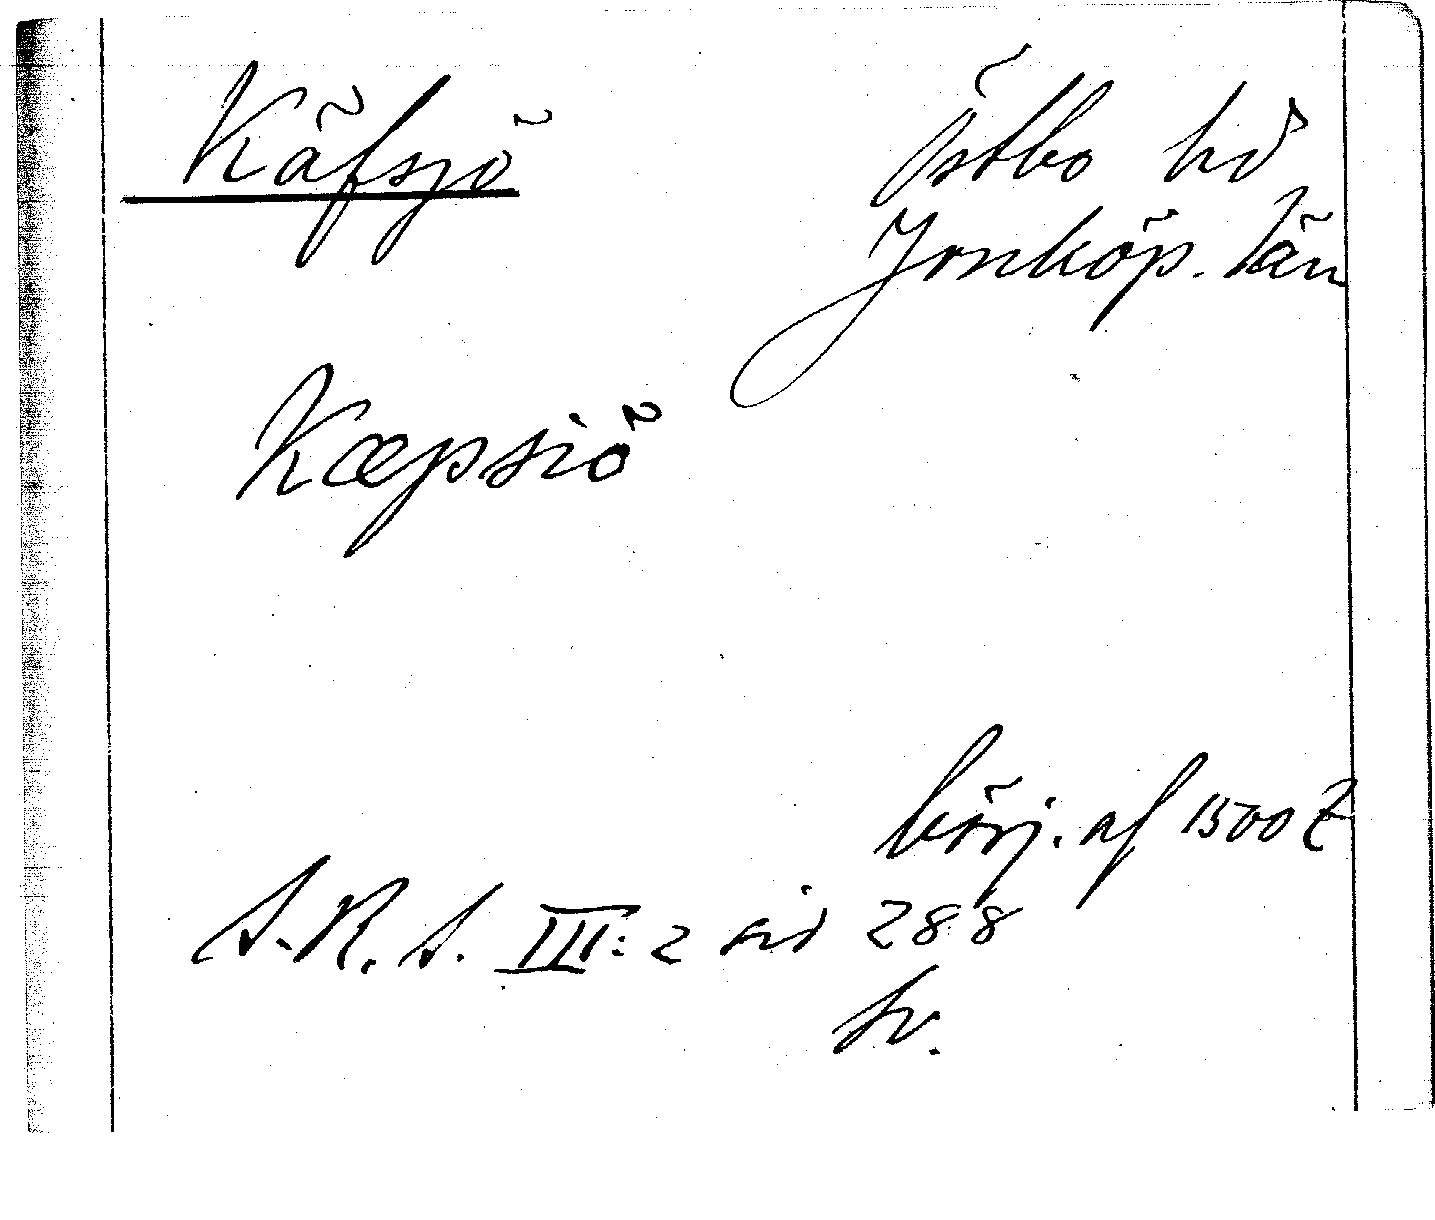 Käfsjö
Östbo hd
Jönköp. län
Kæpsiö
börj. af 1500 t
S.R.S. III: 2 sid 288
sv.